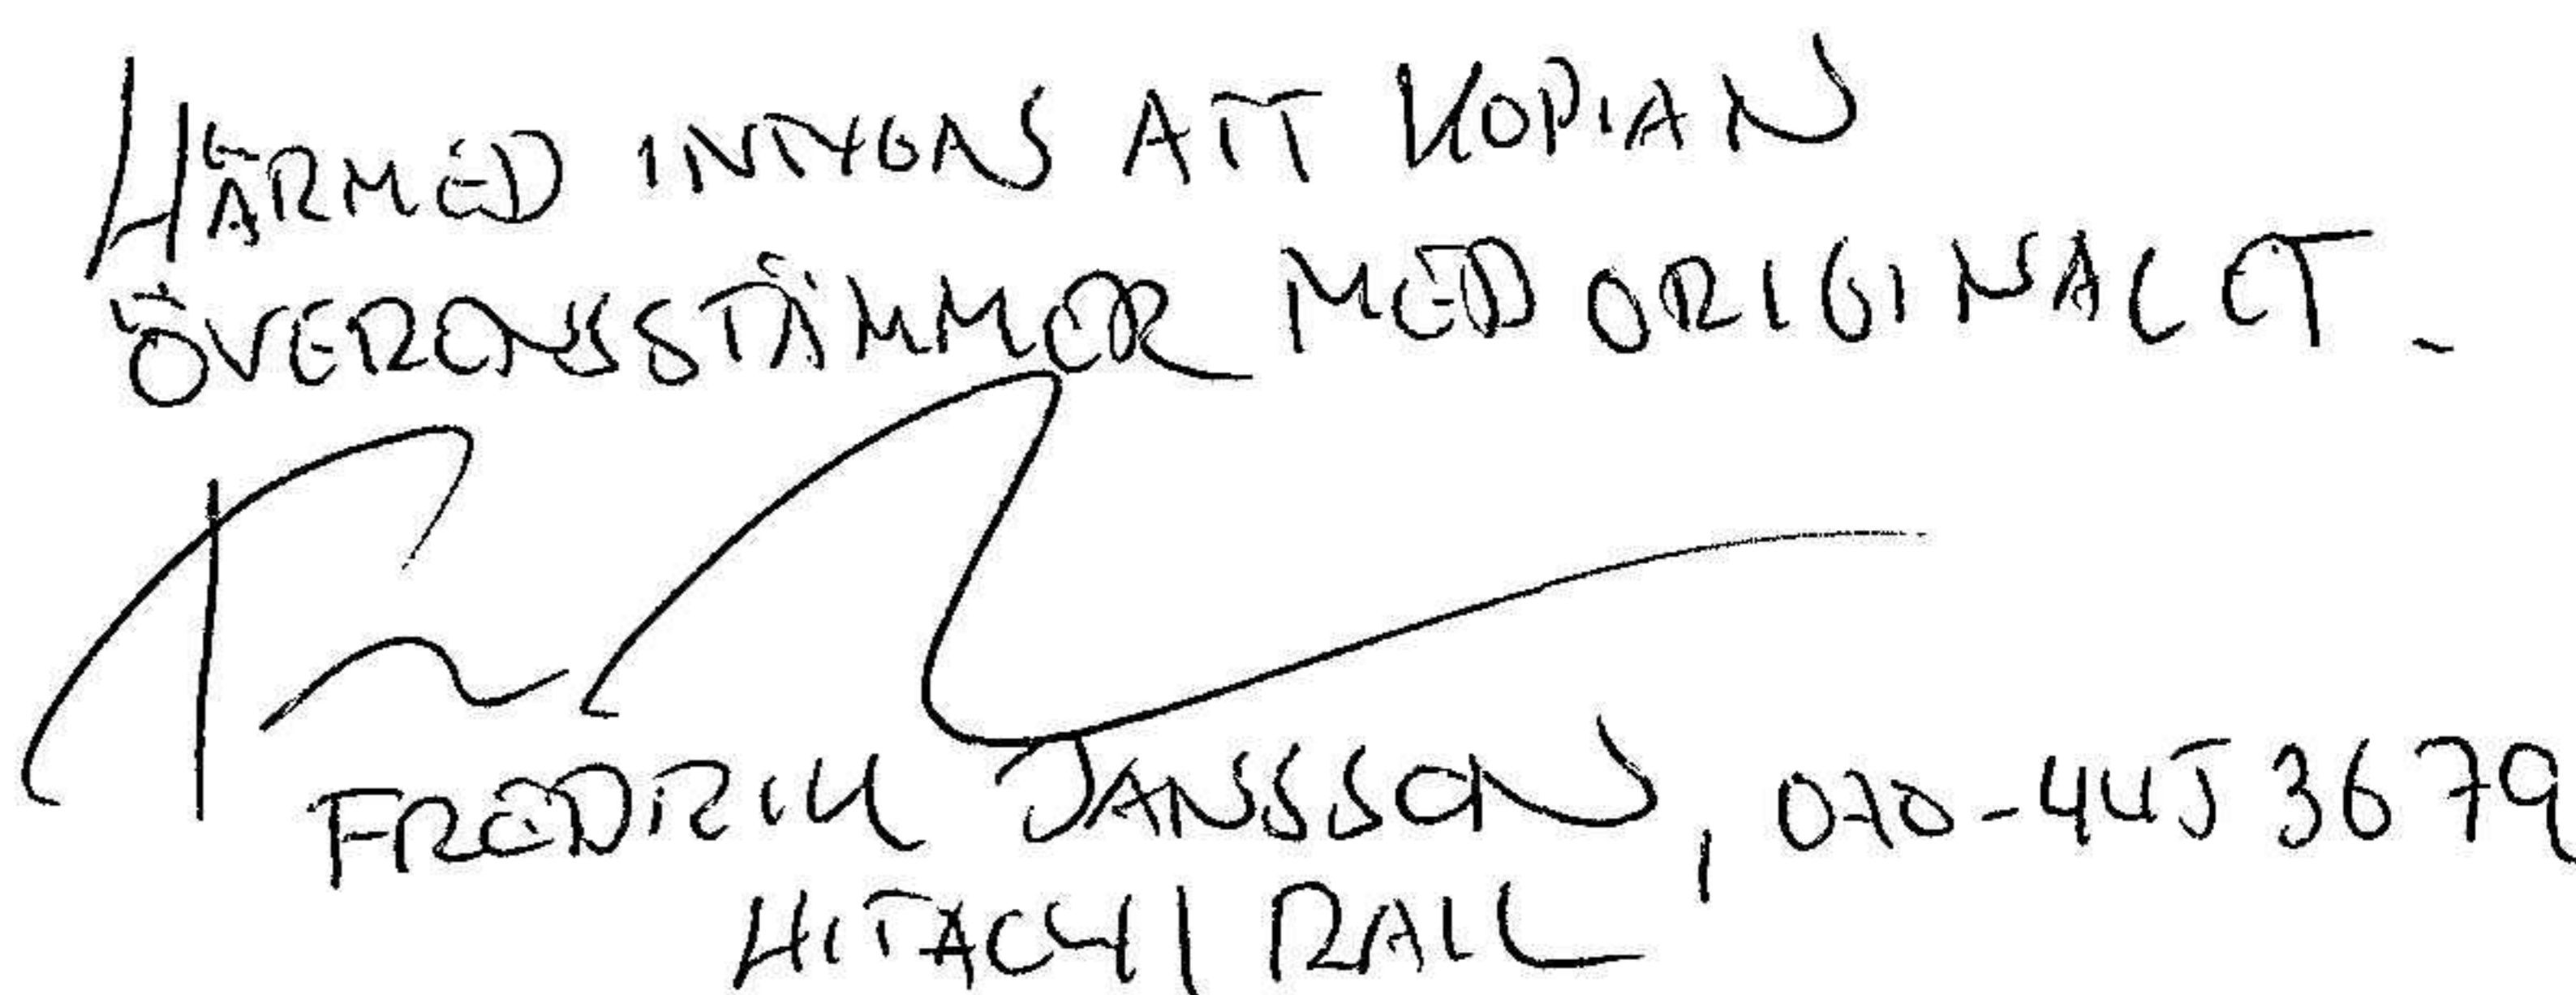 HÄRMED INTYGAS ATT KOPIAN
ÖVERENSSTÄMMER MED ORIGINALET.
FREDRIK JANSSON, 070-445 3679
HITACHI RAIL